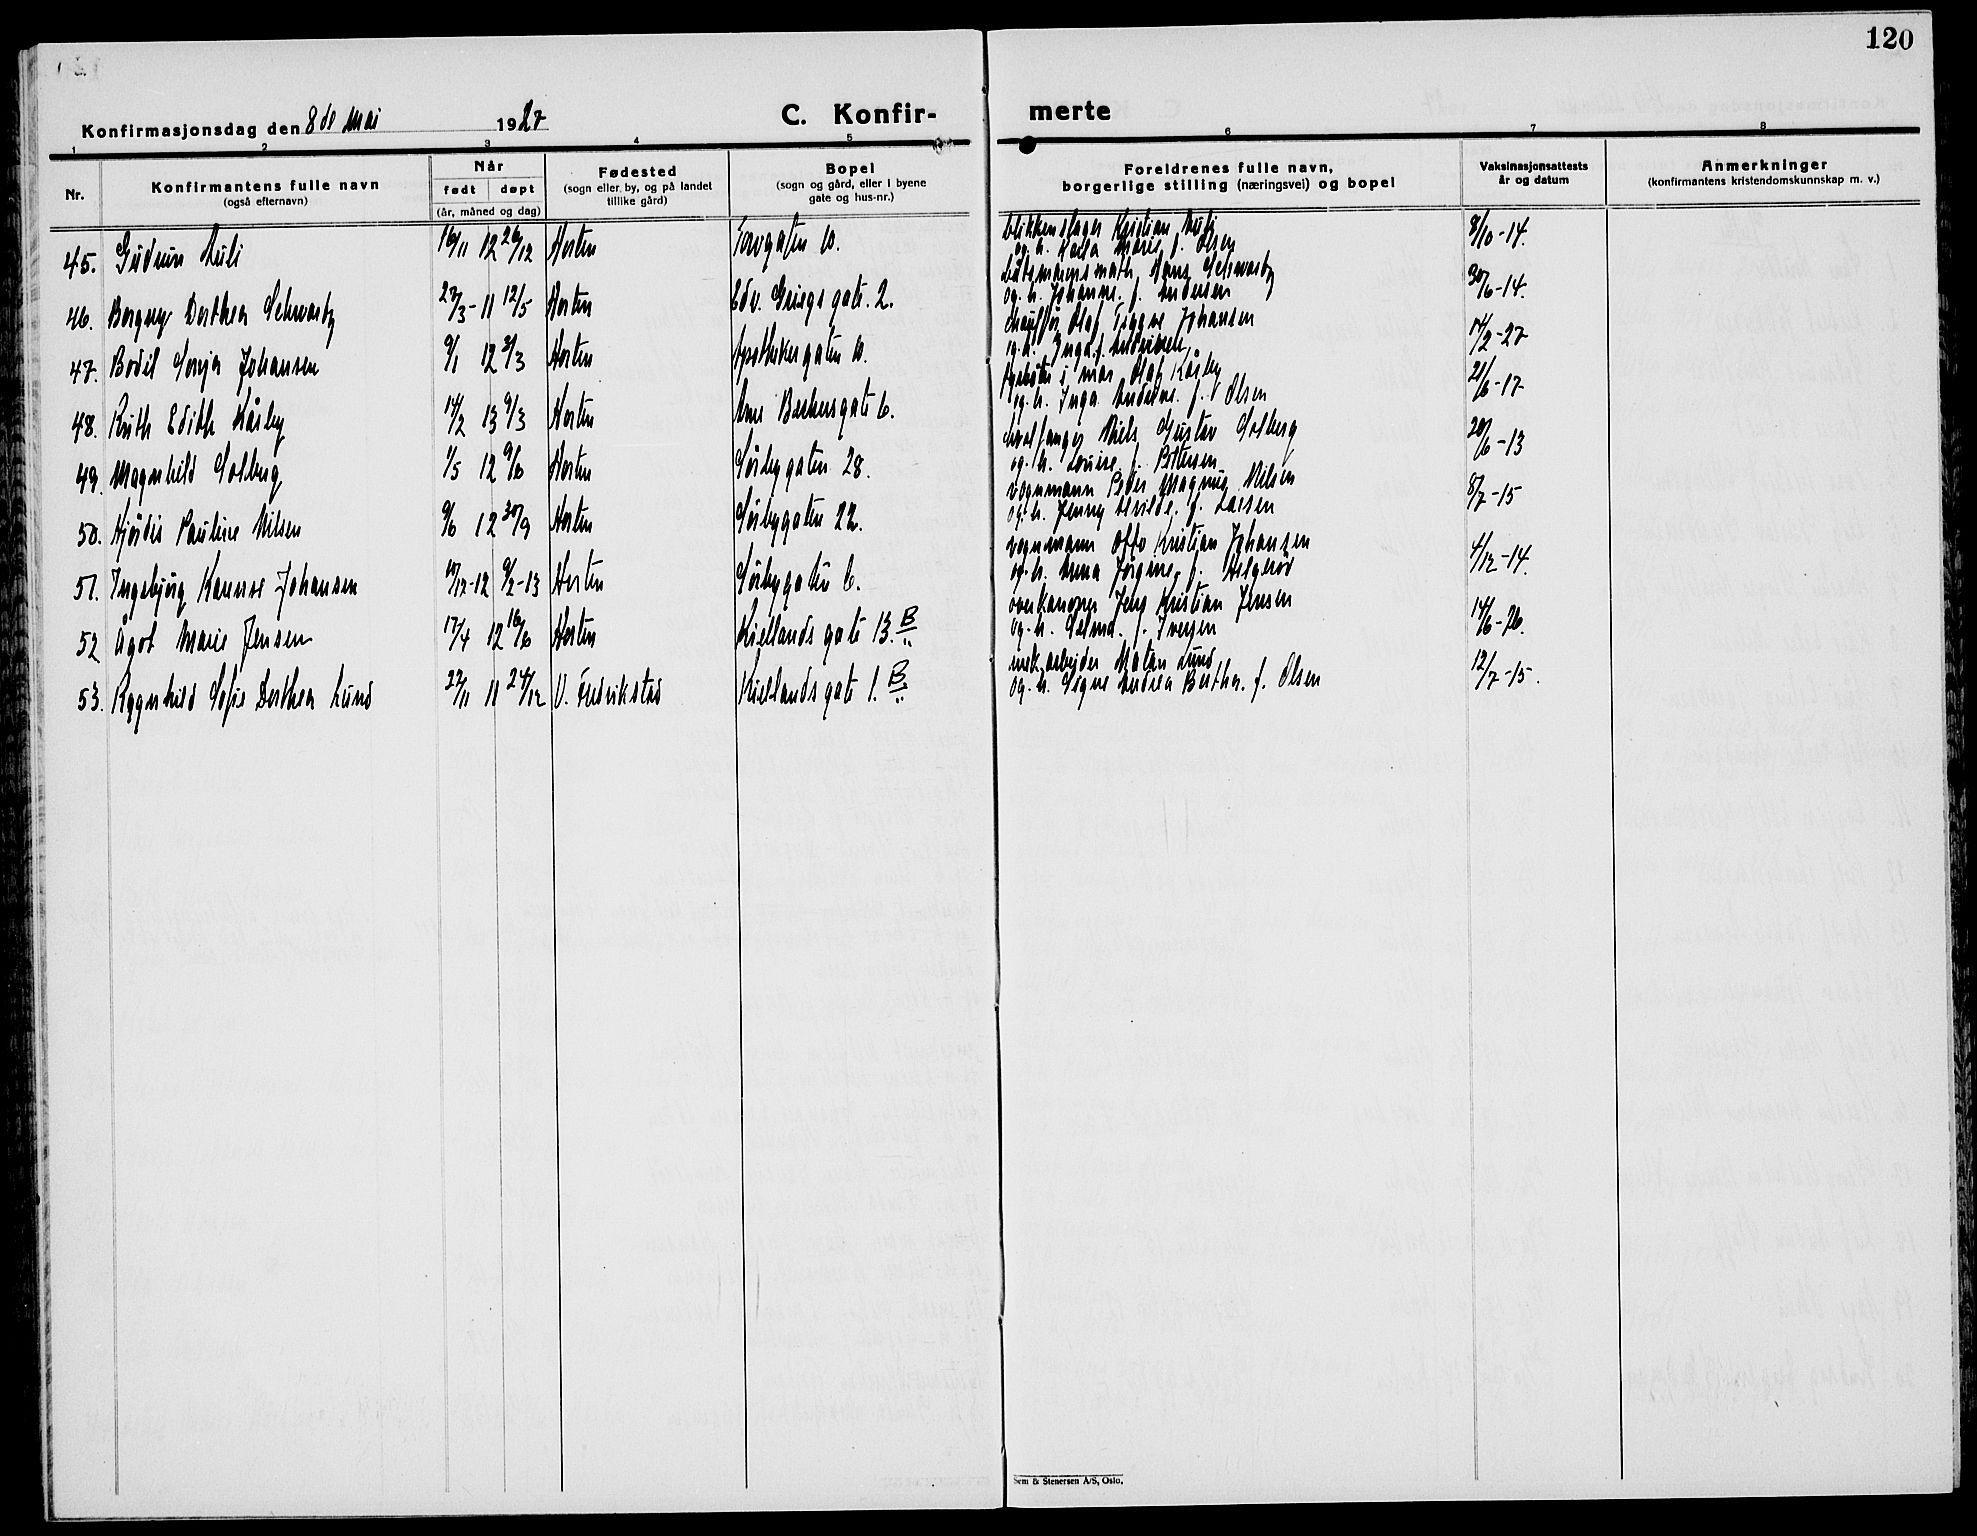 120
Konfirmasjonsdag den 8de mai 1927
C. Konfir-
merte
1 2 3 4 5 6 7 8
Nr.
Konfirmantens fulle navn
(også efternavn)
Når
født døpt
(år, måned og dag)
Fødested
(sogn eller by, og på landet
tillike gård)
Bopel
(sogn og gård, eller i byene
gate og hus-nr.)
Foreldrenes fulle navn,
borgerlige stilling (næringsvei) og bopel
Vaksinasjonsattests
år og datum
Anmerkninger
(konfirmantens kristendomskunnskap m. v.)
45. Gudrun Auli 16/11 12 26/12 Horten Torvgaten 10. blikkenslager Kristian Auli 8/10-14.
og h. Karla Marie f. Olsen
46. Borgny Dorthea Schwarby 27/3-11 12/5 Horten Edv. Griegs gate. 2. båtsmannsmath Hans Schwarby 30/6-14.
og. h. Johanne. f. Andersen
47. Bodil Sonja Johansen 9/1 12 3/3 Horten Apothekergaten 10. chauffør Olaf Johansen 14/2-27
og. h. Inga f.
48. Ruth Edith Kårby 14/2 13 9/3 Horten Arne Backersgate 6. i mar. Olaf Kårby 21/6-17
og. h. Inga f. Olsen
49. Magnhild Solberg 1/5 12 9/6 Horten Sørbygaten 28. hvalfanger Niels Gustav Solberg 20/6-13
og. h. Louise. f. Pettersen
50. Hjørdis Pauline Nilsen 9/6 12 30/9 Horten Sørbygaten 22. vognmann Peder Magnus Nilsen 8/7-15
og. h. Jenny f. Larsen
51. Ingebjørg Johansen 10/12-12 9/2-13 Horten Sørbygaten 6. vognmann Otto Kristian Johansen 4/12-14.
og. h. Anna Jørgine. f. Helgerød
52 Ågot Marie Jensen 17/4 12 16/6 Horten Kiellands gate 13. B overkanoner Jens Kristian Jensen 14/6-26.
og. h. Selma. f. Iversen
53. Ragnhild Sofie Dorthea Lund 22/11 11 24/12 V. Fredrikstad Kiellands gate 1. B mek. arbeider Lund 12/7-15.
og. h. Signe Andrea Berthe. f. Olsen
Sem & Stenersen A/S, Oslo.